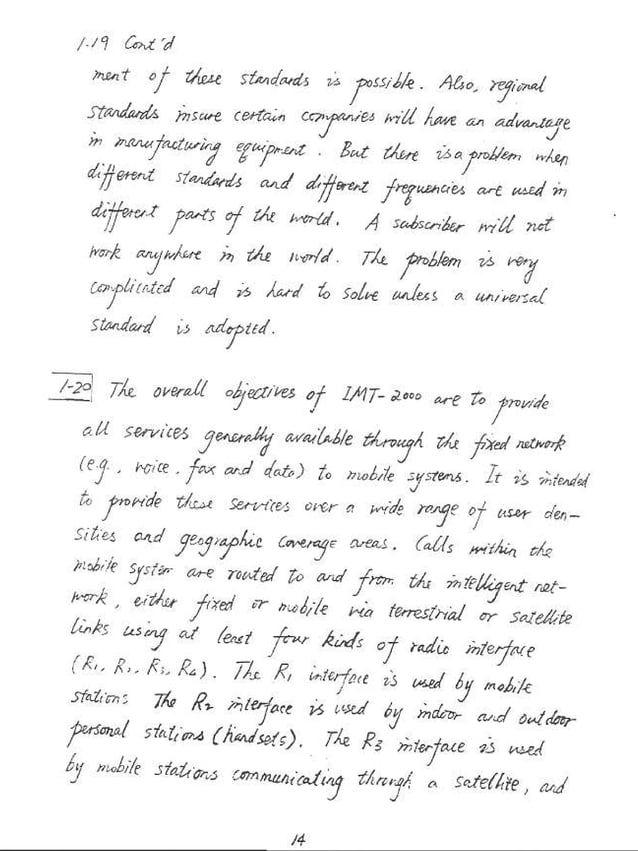 1.19 Cont'd
ment of these standards is possible. Also, regional
standards insure certain companies will have an advantage
in manufacturing equipment. But there is a problem when
different standards and different frequencies are used in
different parts of the world. A subscriber will not
work anywhere in the world. The problem is very
complicated and is hard to solve unless a universal
standard is adopted.
1-20 The overall objectives of IMT-2000 are to provide
all services generally available through the fixed network
(e.g., voice, fax and data) to mobile systems. It is intended
to provide these services over a wide range of user den-
sities and geographic coverage areas. Calls within the
mobile system are routed to and from the intelligent net-
work, either fixed or mobile via terrestrial or satellite
links using at least four kinds of radio interface
(R1, R2, R3, R4). The R1 interface is used by mobile
stations The R2 interface is used by indoor and outdoor
personal stations (handsets). The R3 interface is used
by mobile stations communicating through a satellite, and
14